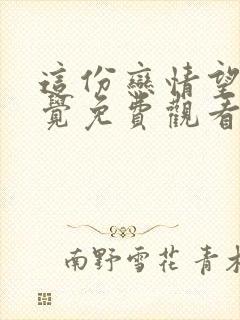 這份戀情望
覺免費觀看
南野雪花 青木